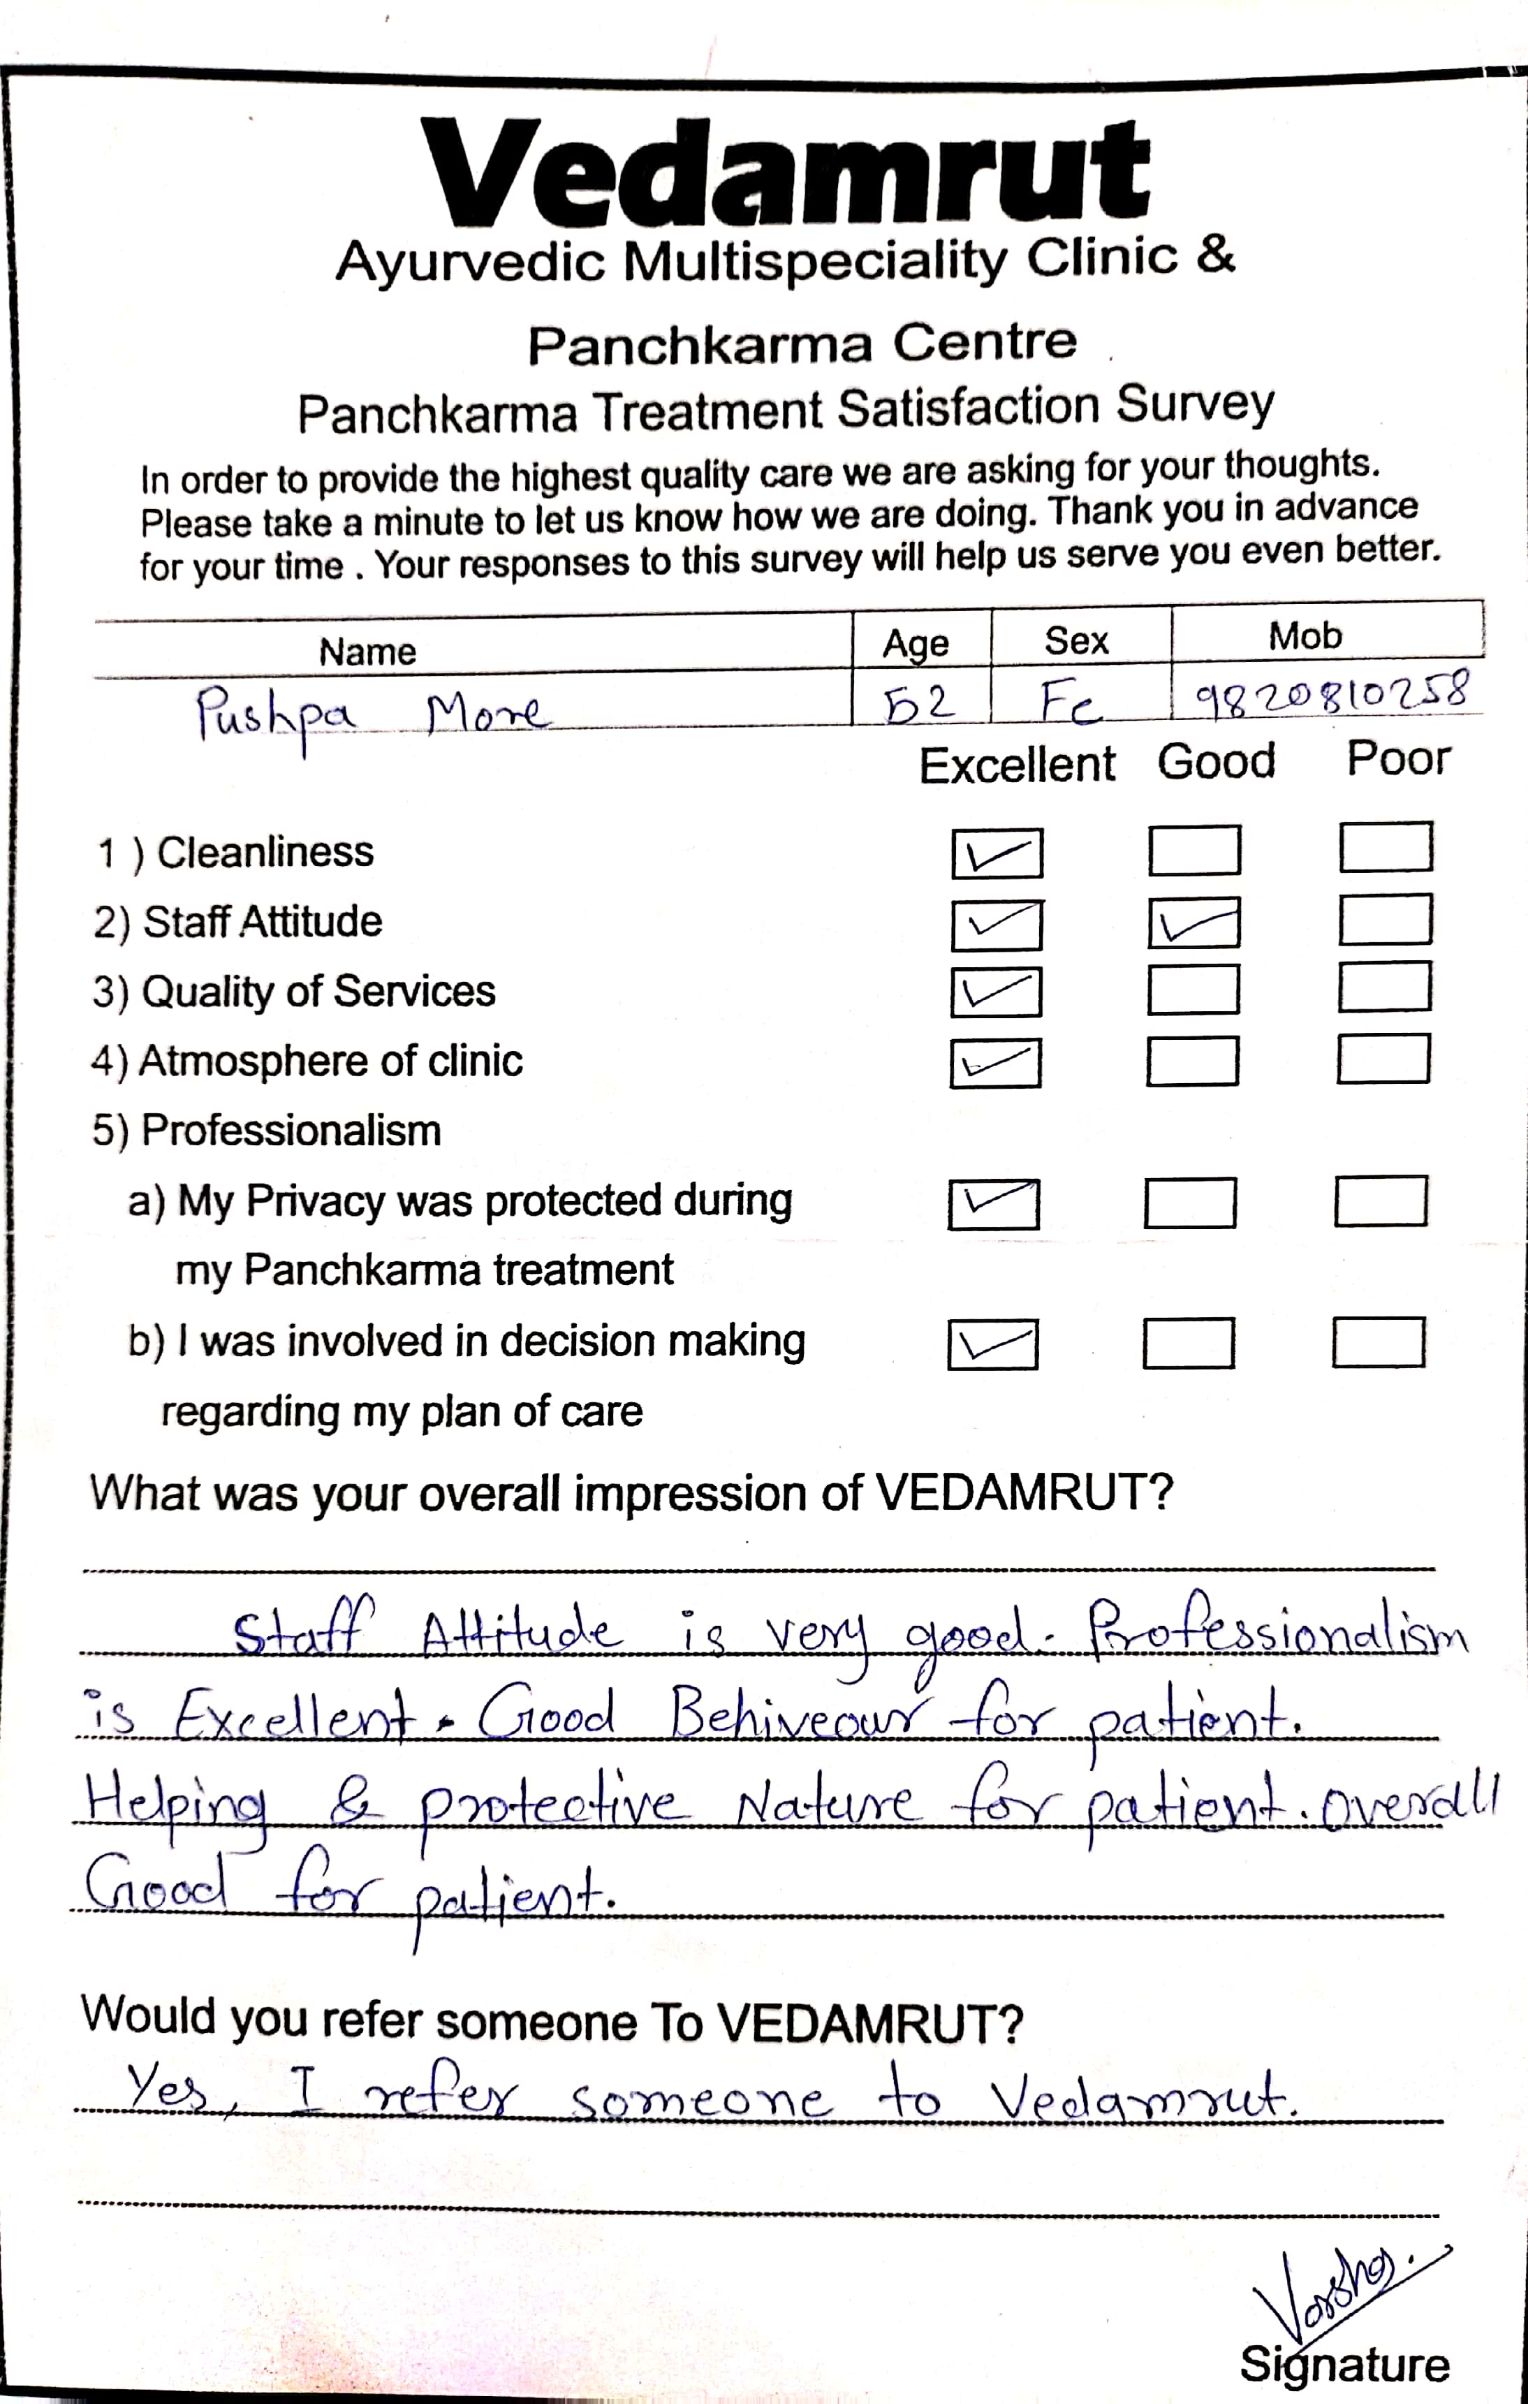 Vedamrut
Ayurvedic Multispeciality Clinic &
Panchkarma Centre
Panchkarma Treatment Satisfaction Survey
In order to provide the highest quality care we are asking for your thoughts.
Please take a minute to let us know how we are doing. Thank you in advance
for your time . Your responses to this survey will help us serve you even better.
Name Age Sex Mob
Pushpa More 52 Fe 9820810258
Excellent Good Poor
1 ) Cleanliness ✓
2) Staff Attitude ✓ ✓
3) Quality of Services ✓
4) Atmosphere of clinic ✓
5) Professionalism
a) My Privacy was protected during ✓
my Panchkarma treatment
b) I was involved in decision making ✓
regarding my plan of care
What was your overall impression of VEDAMRUT?
Staff Attitude is very good. Professionalism
is Excellent. Good Behiveour for patient.
Helping & protective Nature for patient. overall
Good for patient.
Would you refer someone To VEDAMRUT?
Yes, I refer someone to Vedamrut.
Varsha.
Signature